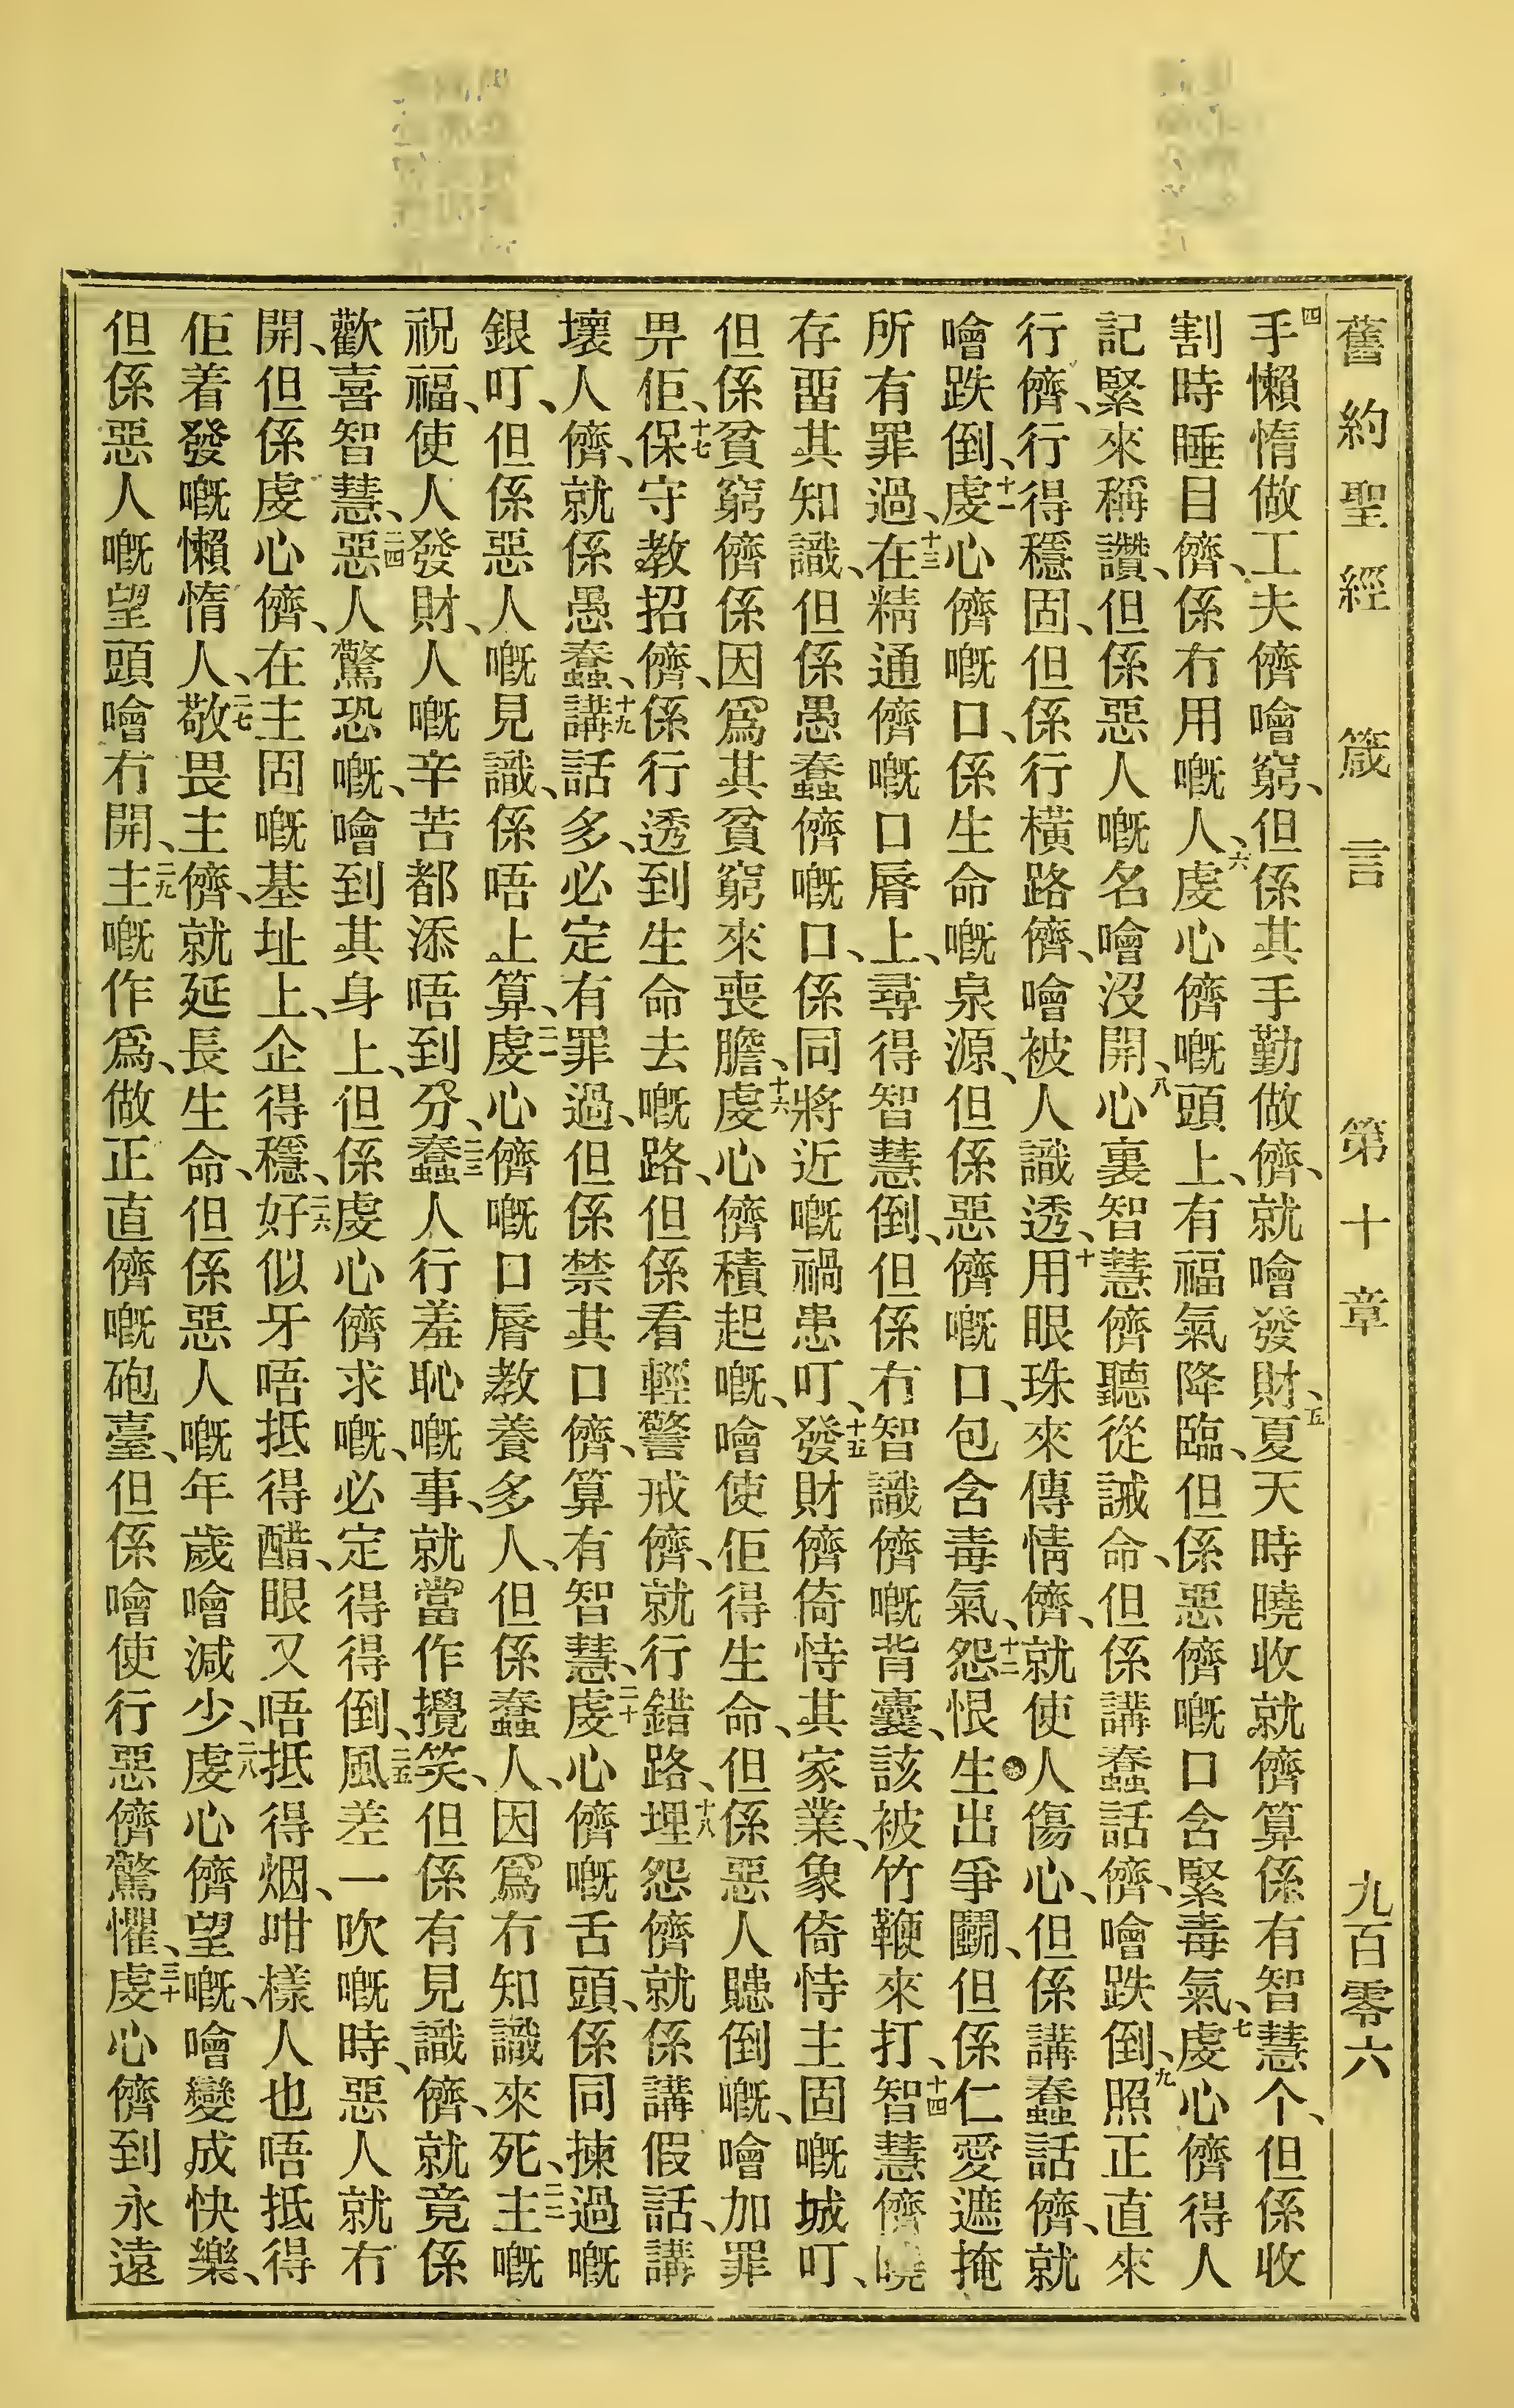 舊約聖經 箴言 第十章 九百零六
四手懶惰做工夫儕噲窮、但係其手勤做儕、就噲發財、五夏天時曉收就儕算係有智慧个、但係收
割時睡目儕、係冇用嘅人、六虔心儕嘅頭上、有福氣降臨、但係惡儕嘅口含緊毒氣、七虔心儕得人
記緊來稱讚、但係惡人嘅名噲沒開、八心裏智慧儕聽從誡命、但係講蠢話儕、噲跌倒、九照正直來
行儕、行得穩固、但係行橫路儕、噲被人識透、十用眼珠來傳情儕、就使人傷心、但係講蠢話儕、就
噲跌倒、十一虔心儕嘅口、係生命嘅泉源、但係惡儕嘅口、包含毒氣、十二怨恨生出爭鬭、但係仁愛遮掩
所有罪過、十三在精通儕嘅口脣上、尋得智慧倒、但係冇智識儕嘅背囊、該被竹鞭來打、十四智慧儕曉
存畱其知識、但係愚蠢儕嘅口、係同將近嘅禍患叮、十五發財儕倚恃其家業、象倚恃主固嘅城叮、
但係貧窮儕係因爲其貧窮來喪膽、十六虔心儕積起嘅、噲使佢得生命、但係惡人賺倒嘅、噲加罪
畀佢、十七保守教招儕、係行透到生命去嘅路、但係看輕警戒儕、就行錯路、十八埋怨儕就係講假話、講
壞人儕、就係愚蠢、十九講話多、必定有罪過、但係禁其口儕、算有智慧、二十虔心儕嘅舌頭、係同揀過嘅
銀叮、但係惡人嘅見識、係唔上算、二一虔心儕嘅口脣教養多人、但係蠢人、因爲冇知識來死、二二主嘅
祝福、使人發財、人嘅辛苦都添唔到分、二三蠢人行羞恥嘅事、就當作攪笑、但係有見識儕、就竟係
歡喜智慧、二四惡人驚恐嘅、噲到其身上、但係虔心儕求嘅、必定得得倒、二五風差一吹嘅時、惡人就冇
開、但係虔心儕、在主固嘅基址上、企得穩、二六好似牙唔抵得醋、眼又唔抵得烟、咁樣人也唔抵得
佢着發嘅懶惰人、二七敬畏主儕、就延長生命、但係惡人嘅年歲噲減少、二八虔心儕望嘅、噲變成快樂、
但係惡人嘅望頭噲冇開、二九主嘅作爲、做正直儕嘅砲臺、但係噲使行惡儕驚懼、三十虔心儕到永遠